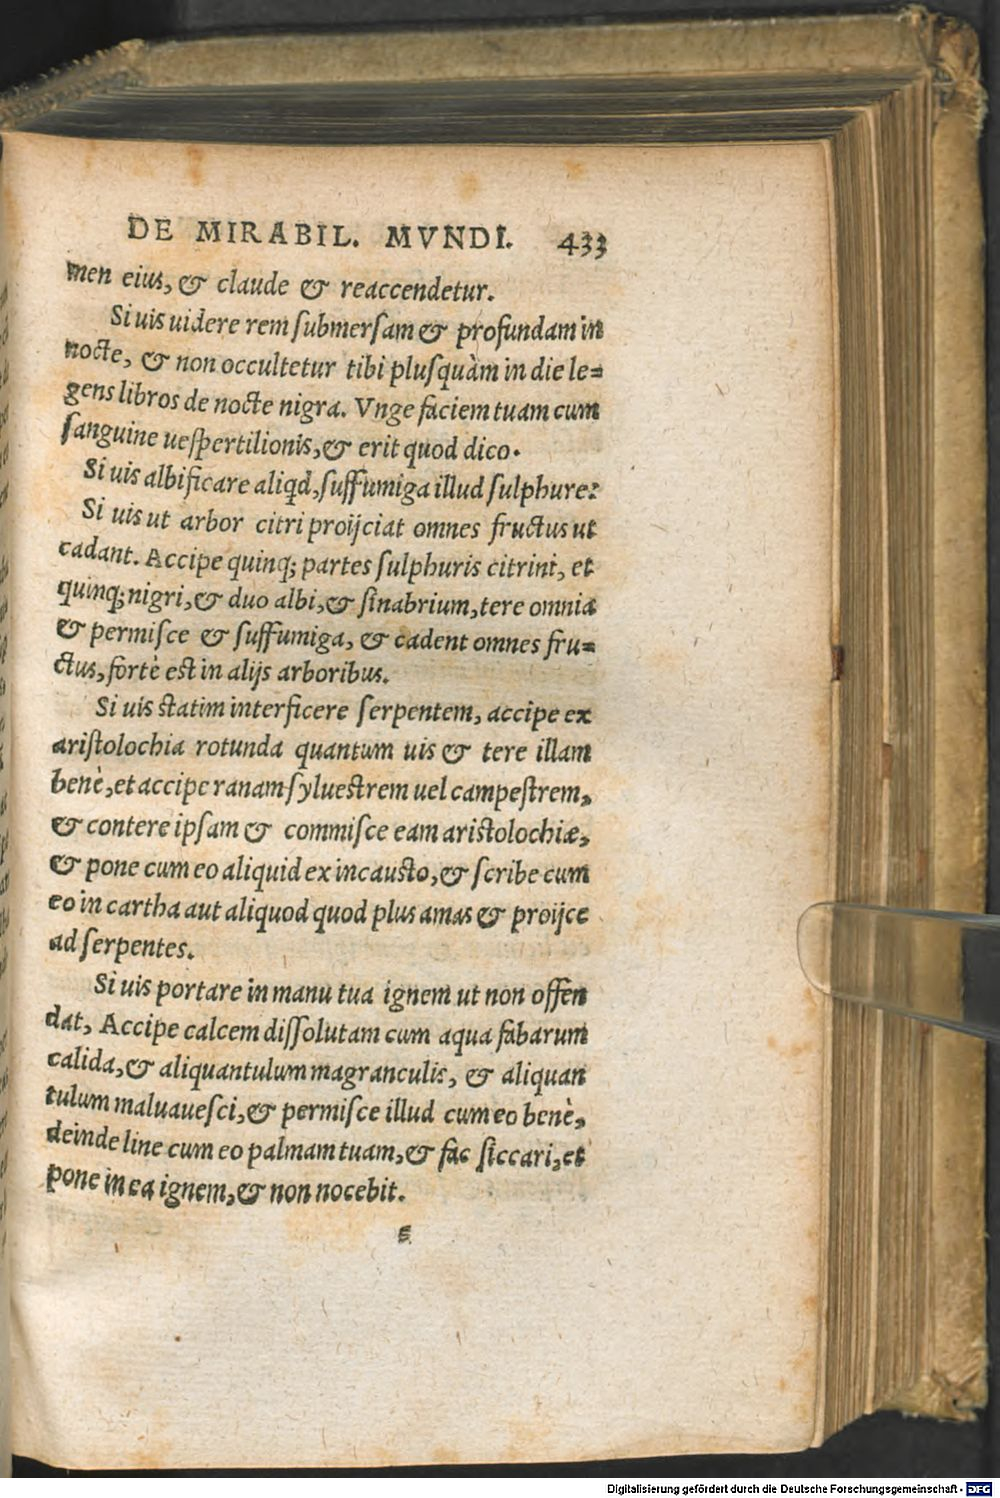 DE MIRABIL. MVNDI. 433
men eius, & claude & reaccendetur.
Si uis uidere rem ſubmerſam & profundam in
nocte, & non occultetur tibi pluſquàm in die le=
gens libros de nocte nigra. Vnge faciem tuam cum
ſanguine ueſpertilionis, & erit quod dico.
Si uis albificare aliqd, ſuffumiga illud ſulphure:
Si uis ut arbor citri proijciat omnes fructus ut
cadant. Accipe quinq; partes ſulphuris citrini, et
quinq; nigri, & duo albi, & ſinabrium, tere omnia
& permiſce & ſuffumiga, & cadent omnes fru=
ctus, fortè est in alijs arboribus.
Si uis statim interficere ſerpentem, accipe ex
ariſtolochia rotunda quantum uis & tere illam
benè, et accipe ranam ſylueſtrem uel campeſtrem,
& contere ipſam & commiſce eam ariſtolochiæ,
& pone cum eo aliquid ex incauſto, & ſcribe cum
eo in cartha aut aliquod quod plus amas & proijce
ad ſerpentes.
Si uis portare in manu tua ignem ut non offen
dat, Accipe calcem diſſolutam cum aqua fabarum
calida, & aliquantulum magranculis, & aliquan
tulum maluaueſci, & permiſce illud cum eo benè,
deinde line cum eo palmam tuam, & fac ſiccari, et
pone in ea ignem, & non nocebit.
Digitalisierung gefördert durch die Deutsche Forschungsgemeinschaft - DFG